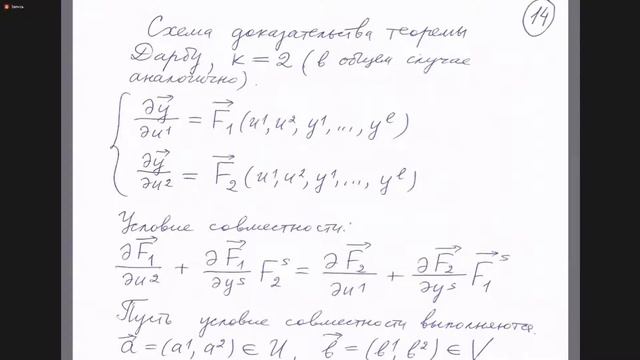 Запись
14
Схема доказательства теоремы
Дарбу, k = 2 (в общем случае
аналогично).
∂y⃗/∂u¹ = F⃗₁(u¹, u², y¹, ..., yˡ)
∂y⃗/∂u² = F⃗₂(u¹, u², y¹, ..., yˡ)
Условие совместности:
∂F⃗₁/∂u² + ∂F⃗₁/∂yˢ F₂ˢ = ∂F⃗₂/∂u¹ + ∂F⃗₂/∂yˢ F⃗₁ˢ
Пусть условие совместности выполняется.
a⃗ = (a¹, a²) ∈ U, b⃗ = (b¹, b²) ∈ V